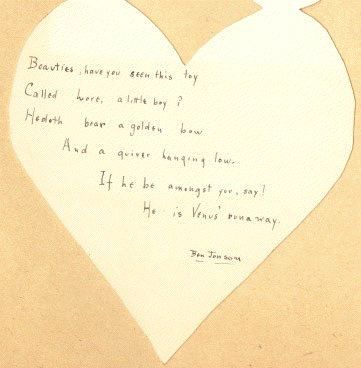 Beauties, have you seen this toy
Called love, a little boy?
He doth bear a golden bow
And a quiver hanging low.
If he be amongst you, say!
He is Venus' runaway.
Ben Jonson